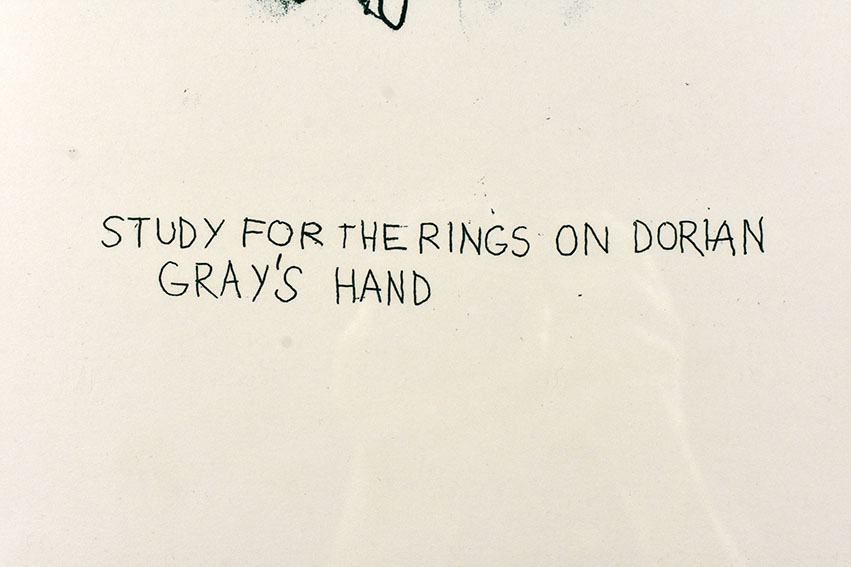 STUDY FOR THE RINGS ON DORIAN
GRAY'S HAND